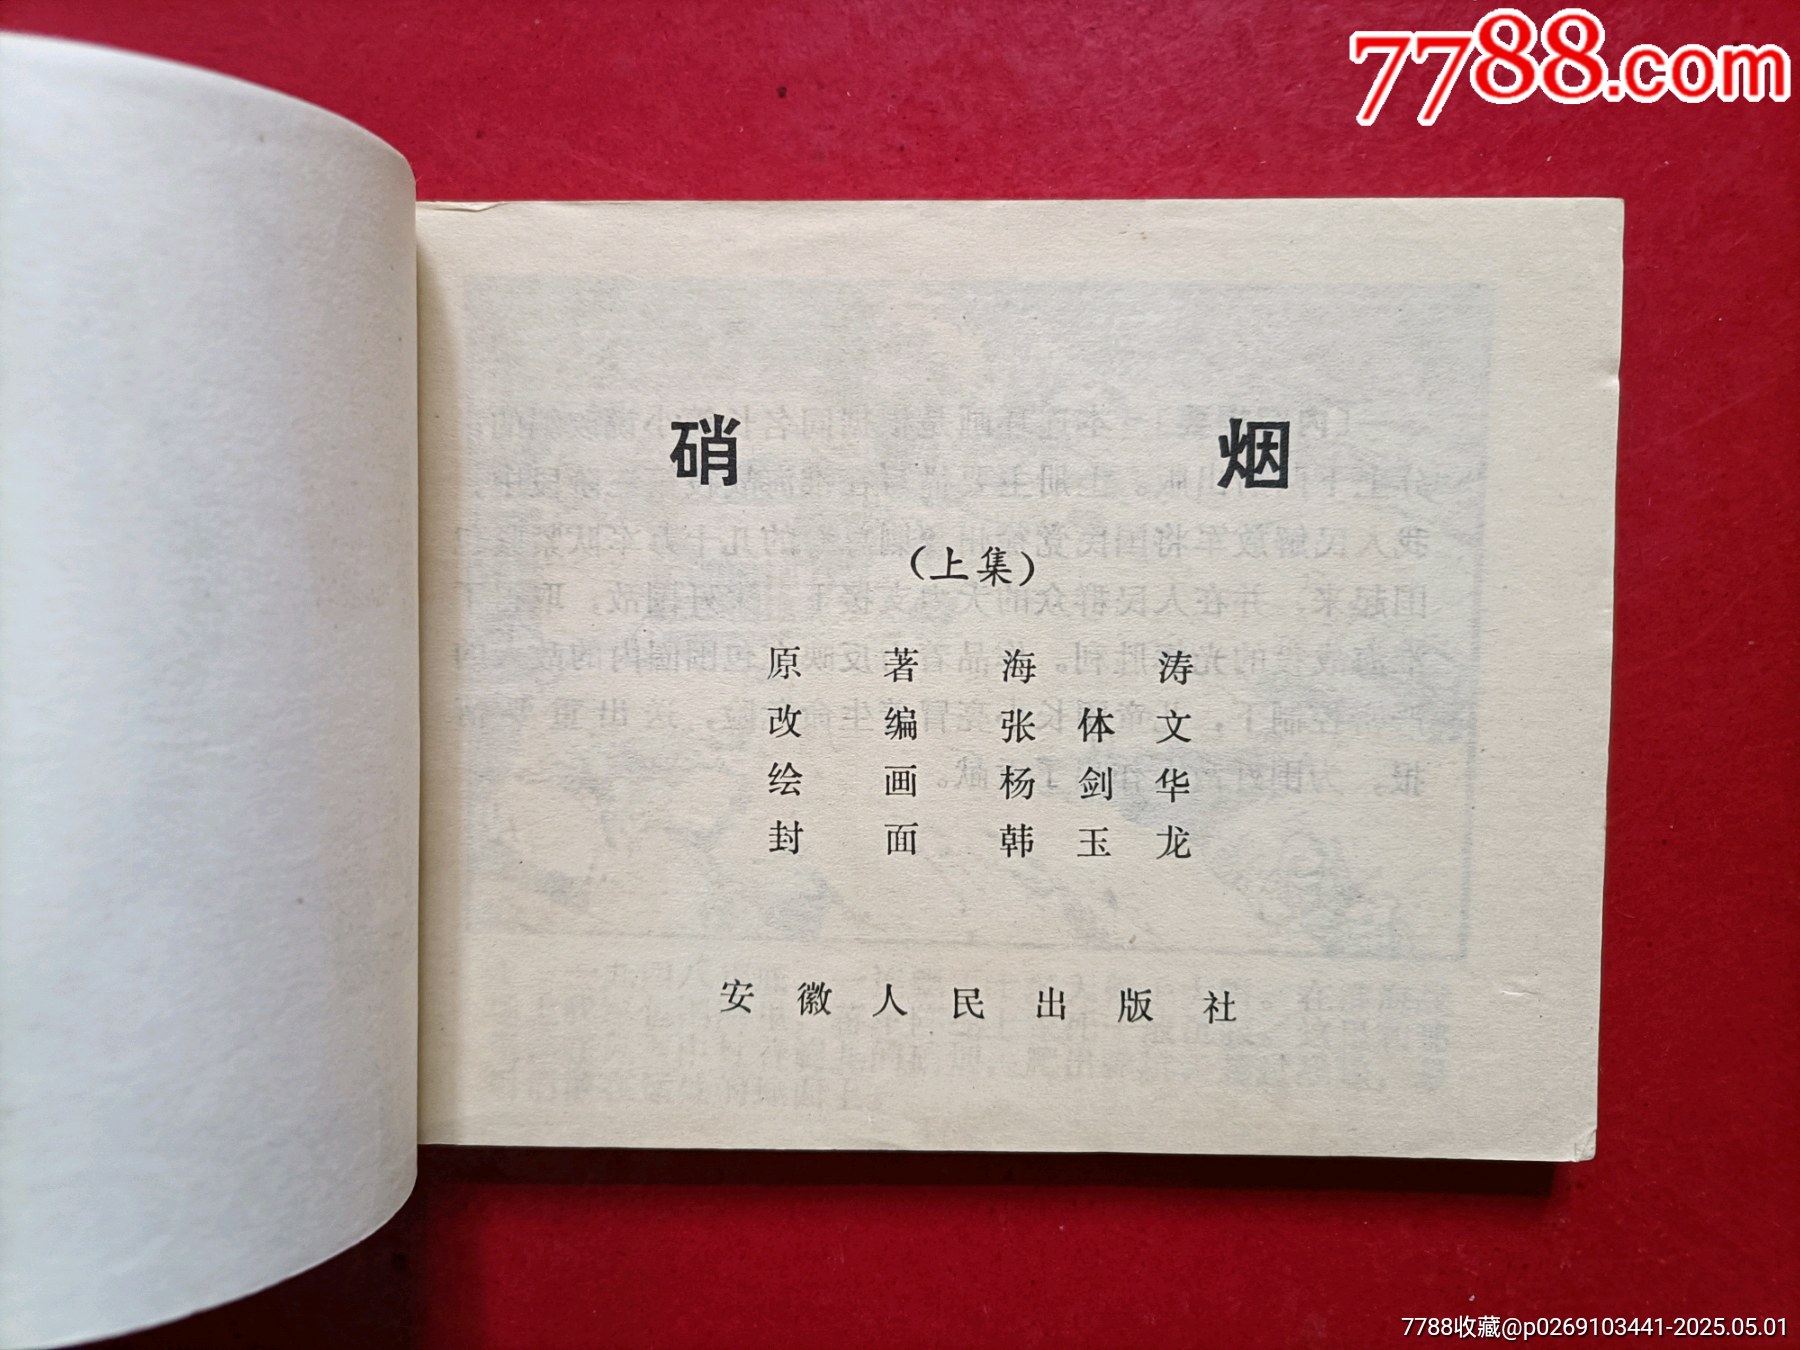 7788.com
硝 烟
（上集）
原 著 海 涛
改 编 张 体 文
绘 画 杨 剑 华
封 面 韩 玉 龙
安 徽 人 民 出 版 社
7788收藏@p0269103441-2025.05.01